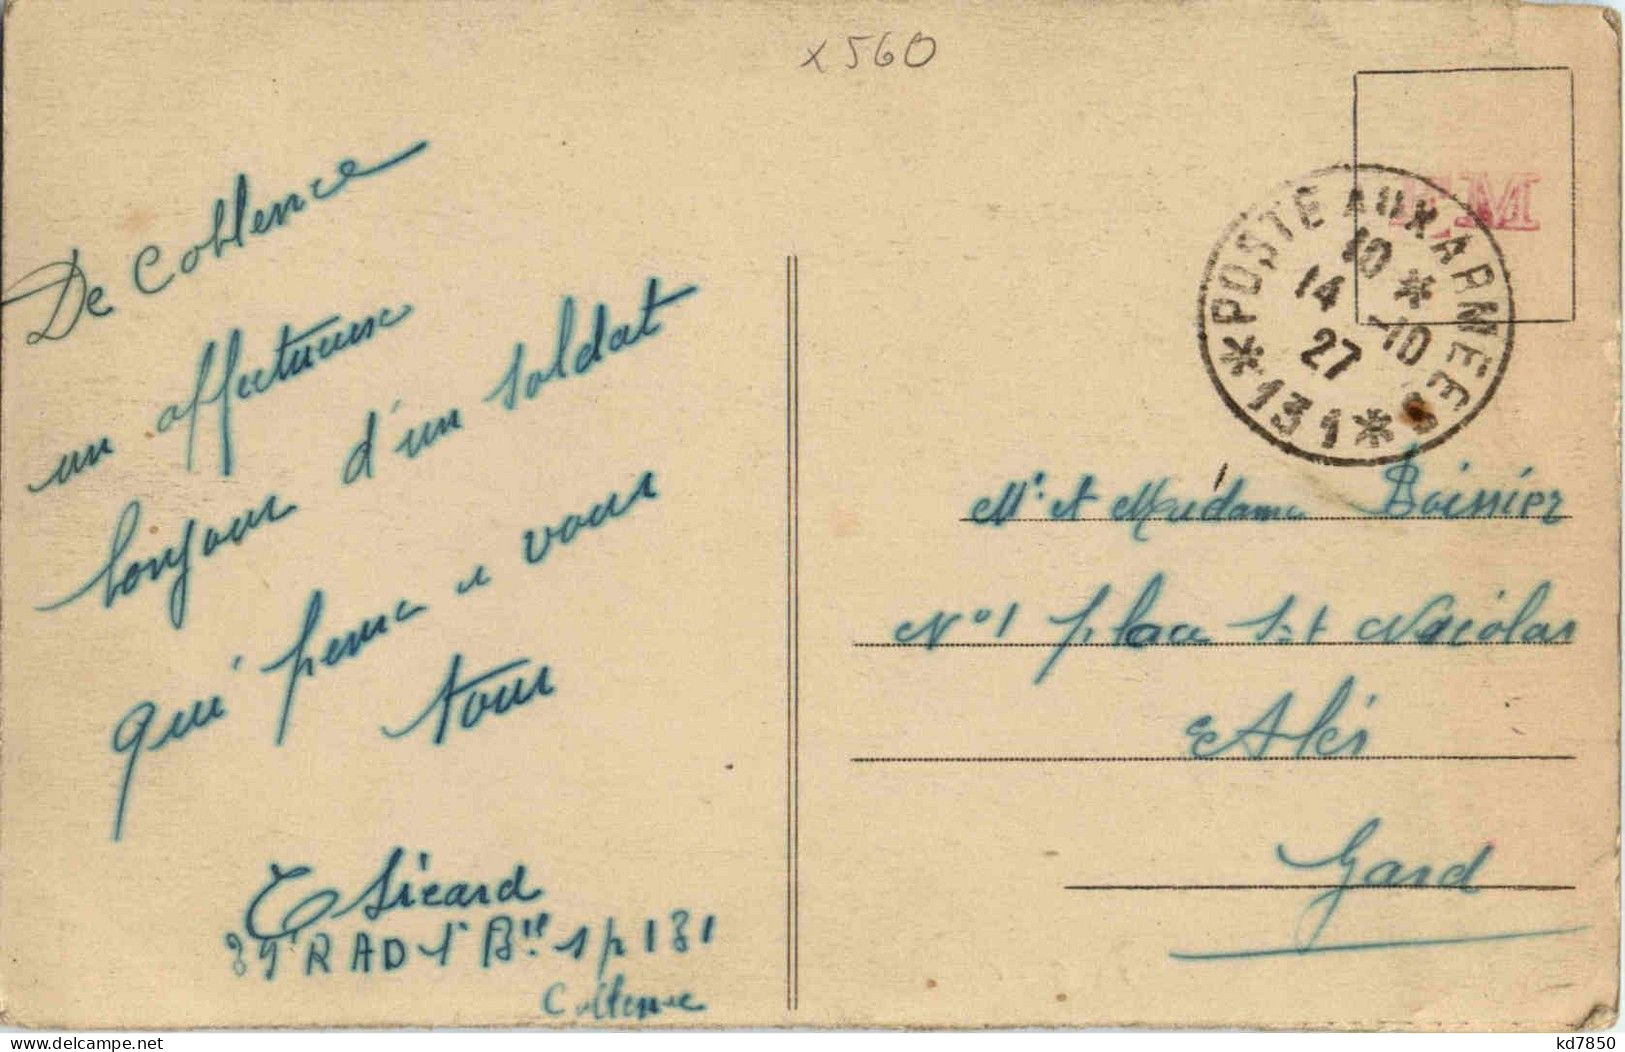 x 560
De Coblence
un affectueux
bonjour d'un soldat
qui pense a vous
tous
Sicard
39e RAD 1e Bie sp 131
Coblence
F.M
POSTE AUX ARMÉES
10 *
14 -10
27
* 131 *
Mr et Madame Boissier
N°1 place St Nicolas
Alès
Gard
www.delcampe.net
kd7850